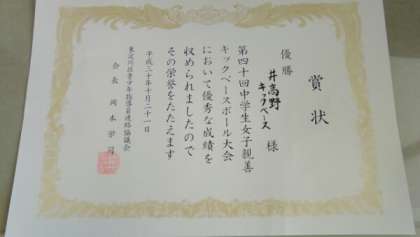 賞状
優勝
井高野
キックベース
様
第四十回中学生女子親善
キックベースボール大会
において優秀な成績を
収められましたので
その栄誉をたたえます
平成二十年十月二十一日
東淀川区青少年指導員連絡協議会
会長